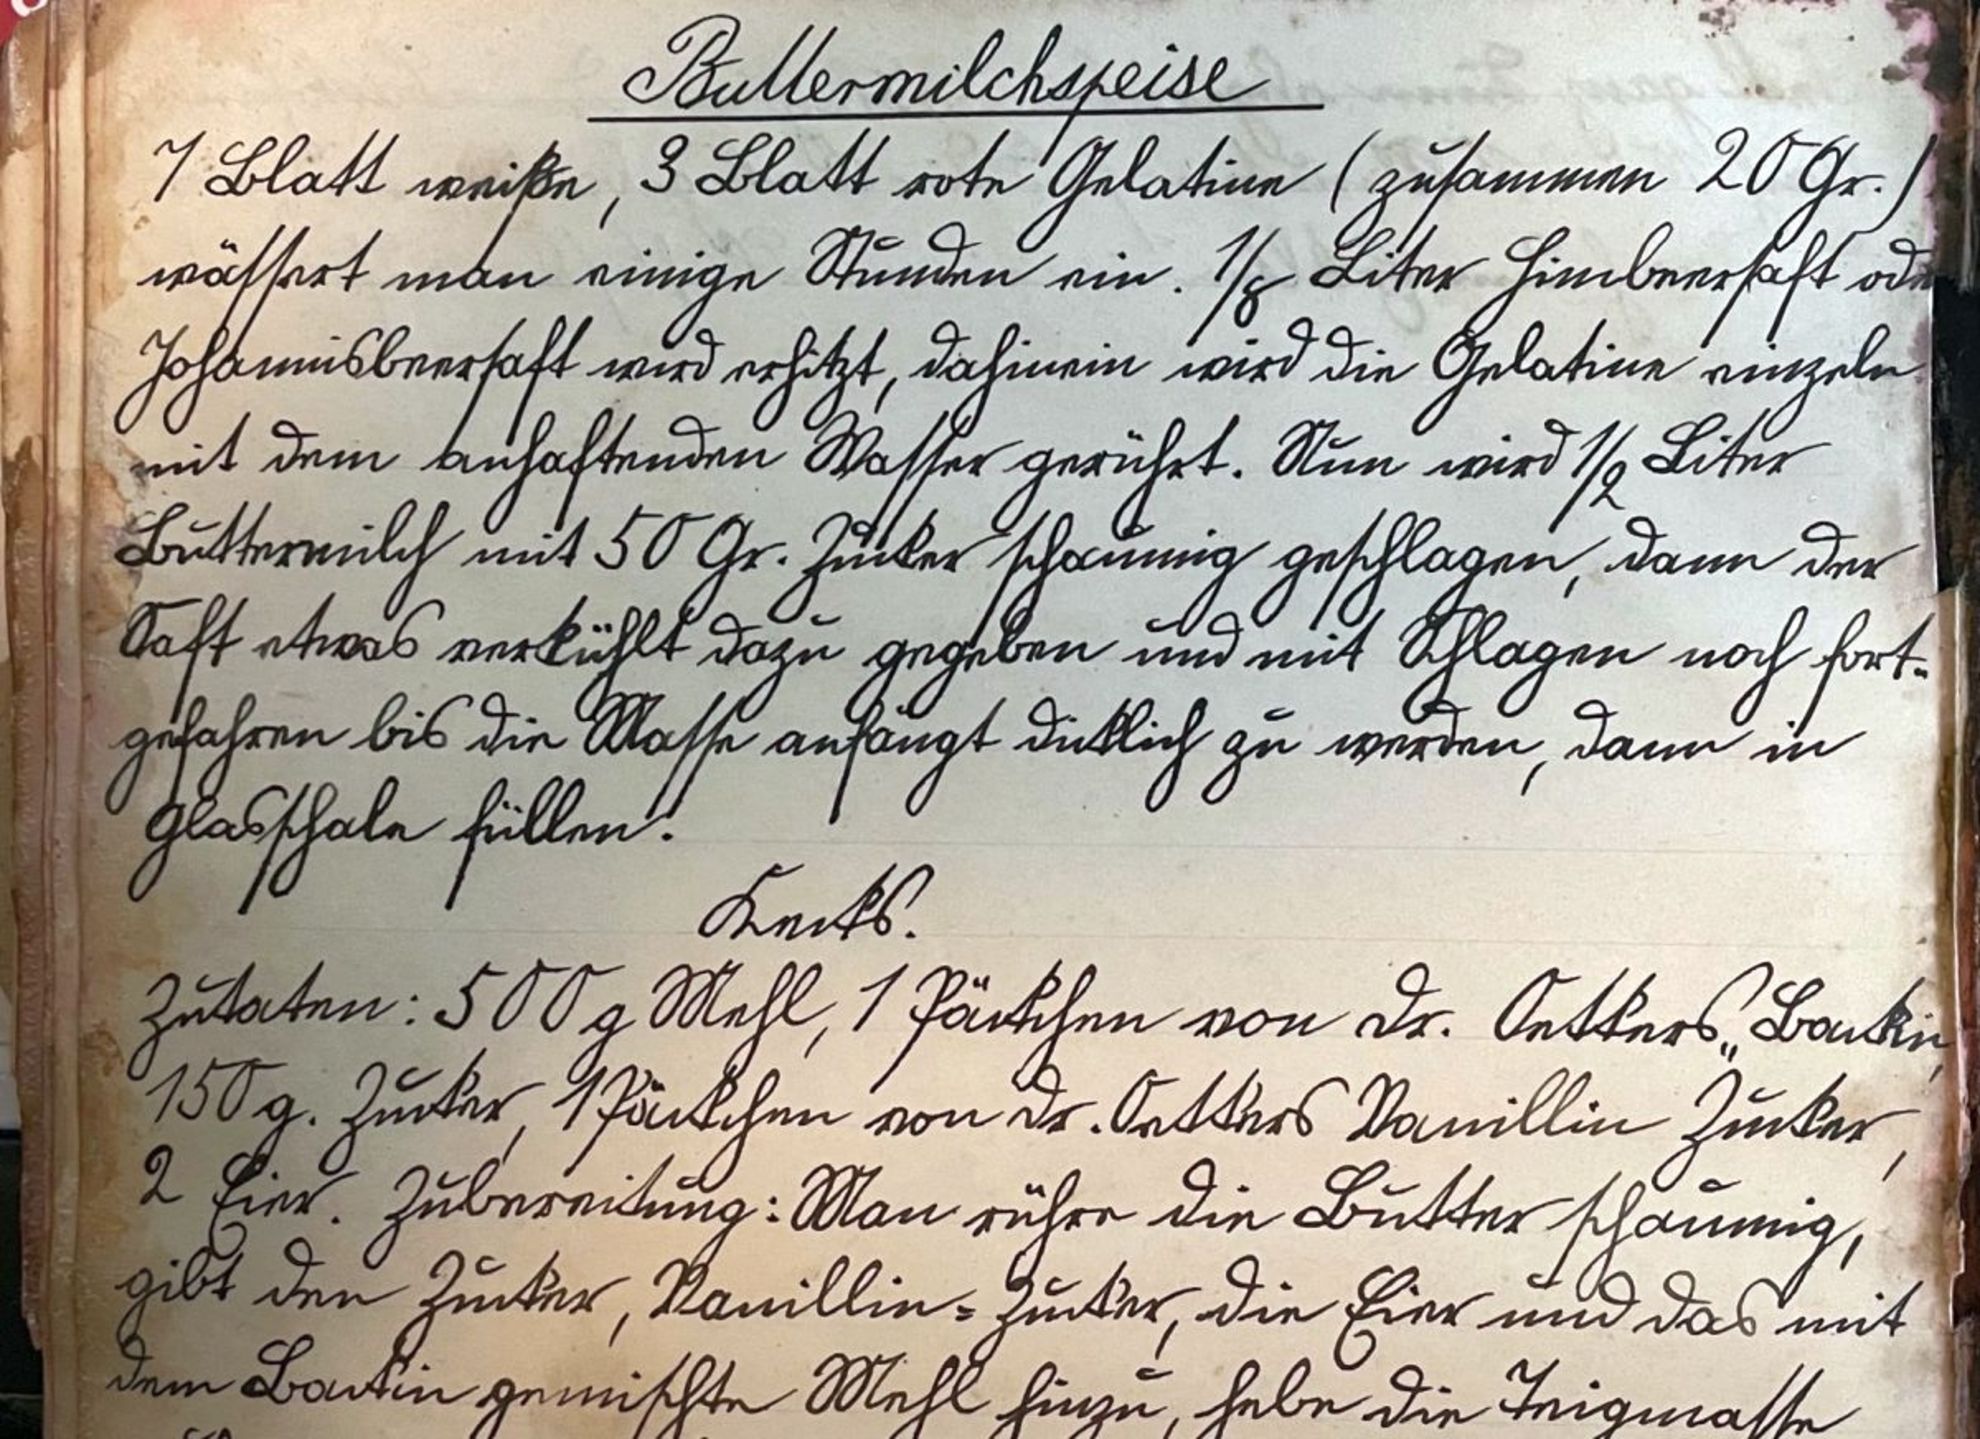 Buttermilchspeise
7 Blatt weiße, 3 Blatt rote Gelatine (zusammen 20 Gr.)
wässert man einige Stunden ein. 1/8 Liter Himbeersaft oder
Johannisbeersaft wird erhitzt, dahinein wird die Gelatine einzeln
mit dem anhaftenden Wasser gerührt. Nun wird 1/2 Liter
Buttermilch mit 50 Gr. Zucker schaumig geschlagen, dann der
Saft etwas verkühlt dazu gegeben und mit Schlagen noch fort-
gefahren bis die Masse anfängt dicklich zu werden, dann in
Glasschale füllen.
Kecks.
Zutaten: 500 g Mehl, 1 Päckchen von Dr. Oetkers „Backin,
150 g. Zucker, 1 Päckchen von Dr. Oetkers Vanillin Zucker,
2 Eier. Zubereitung: Man rühre die Butter schaumig,
gibt den Zucker, Vanillin=Zucker, die Eier und das mit
dem Backin gemischte Mehl hinzu, hebe die Teigmasse